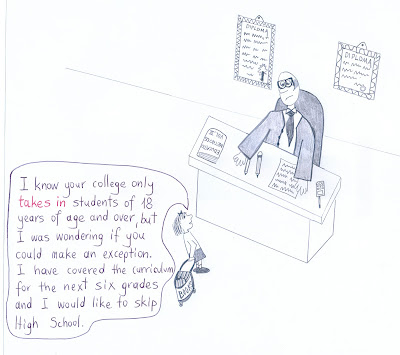 DIPLOMA
DIPLOMA
I know your college only
takes in students of 18
years of age and over, but
I was wondering if you
could make an exception.
I have covered the curriculum
for the next six grades
and I would like to skip
High School.